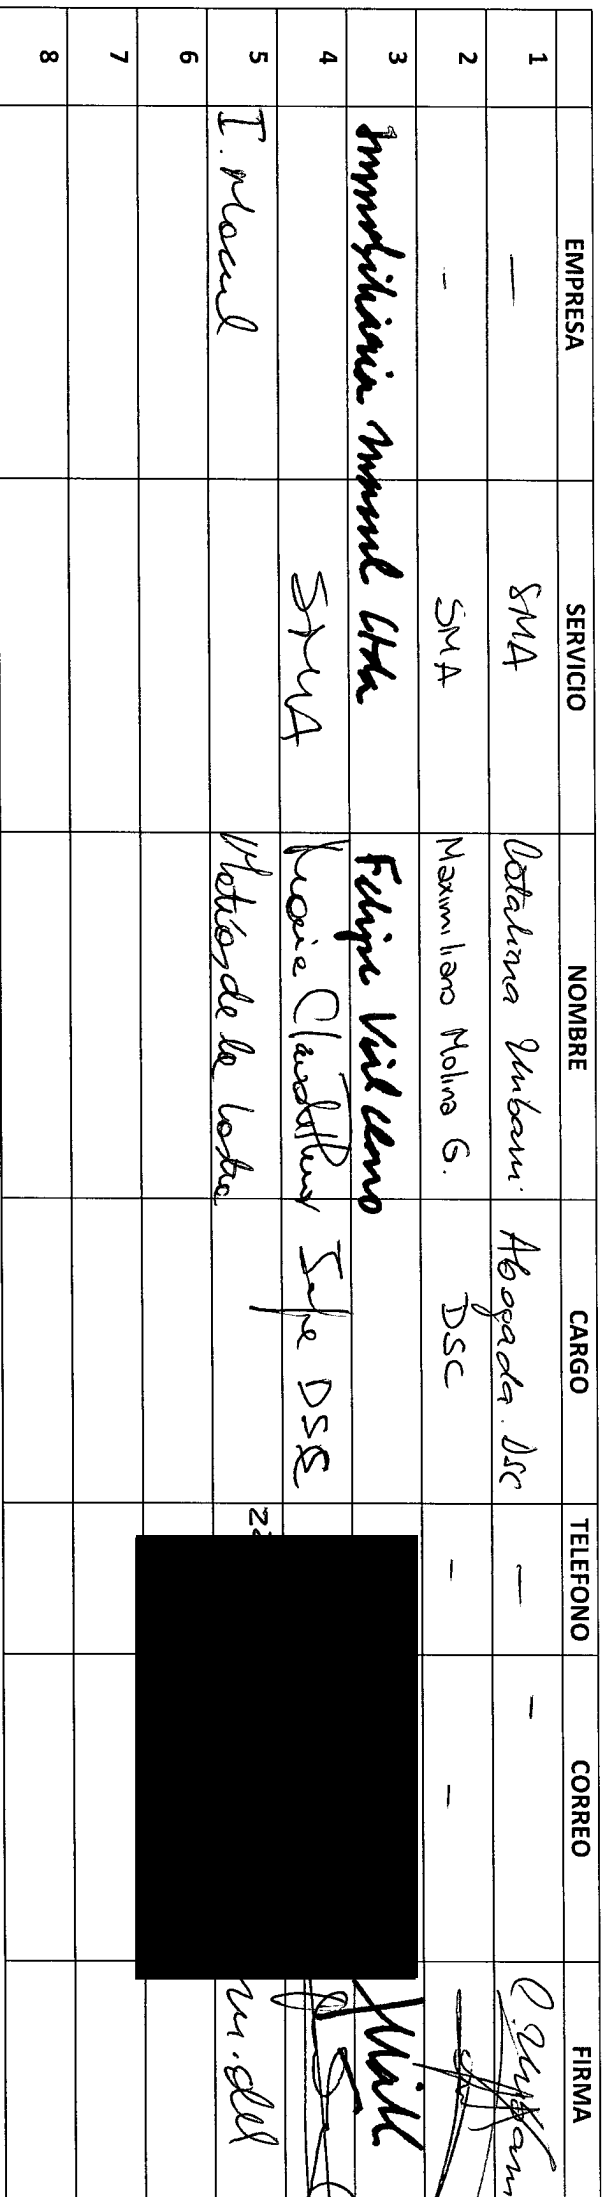 EMPRESA SERVICIO NOMBRE CARGO TELEFONO CORREO FIRMA
1 — SMA Catalina Uribarri Abogada. DSC — -
2 - SMA Maximiliano Molina G. DSC - -
3 Inmobiliaria Macul Ltda Felipe Vial
4 SMA Marie Claude Jefe DSC
5 I. Macul Matías de la 22 M. del
6
7
8